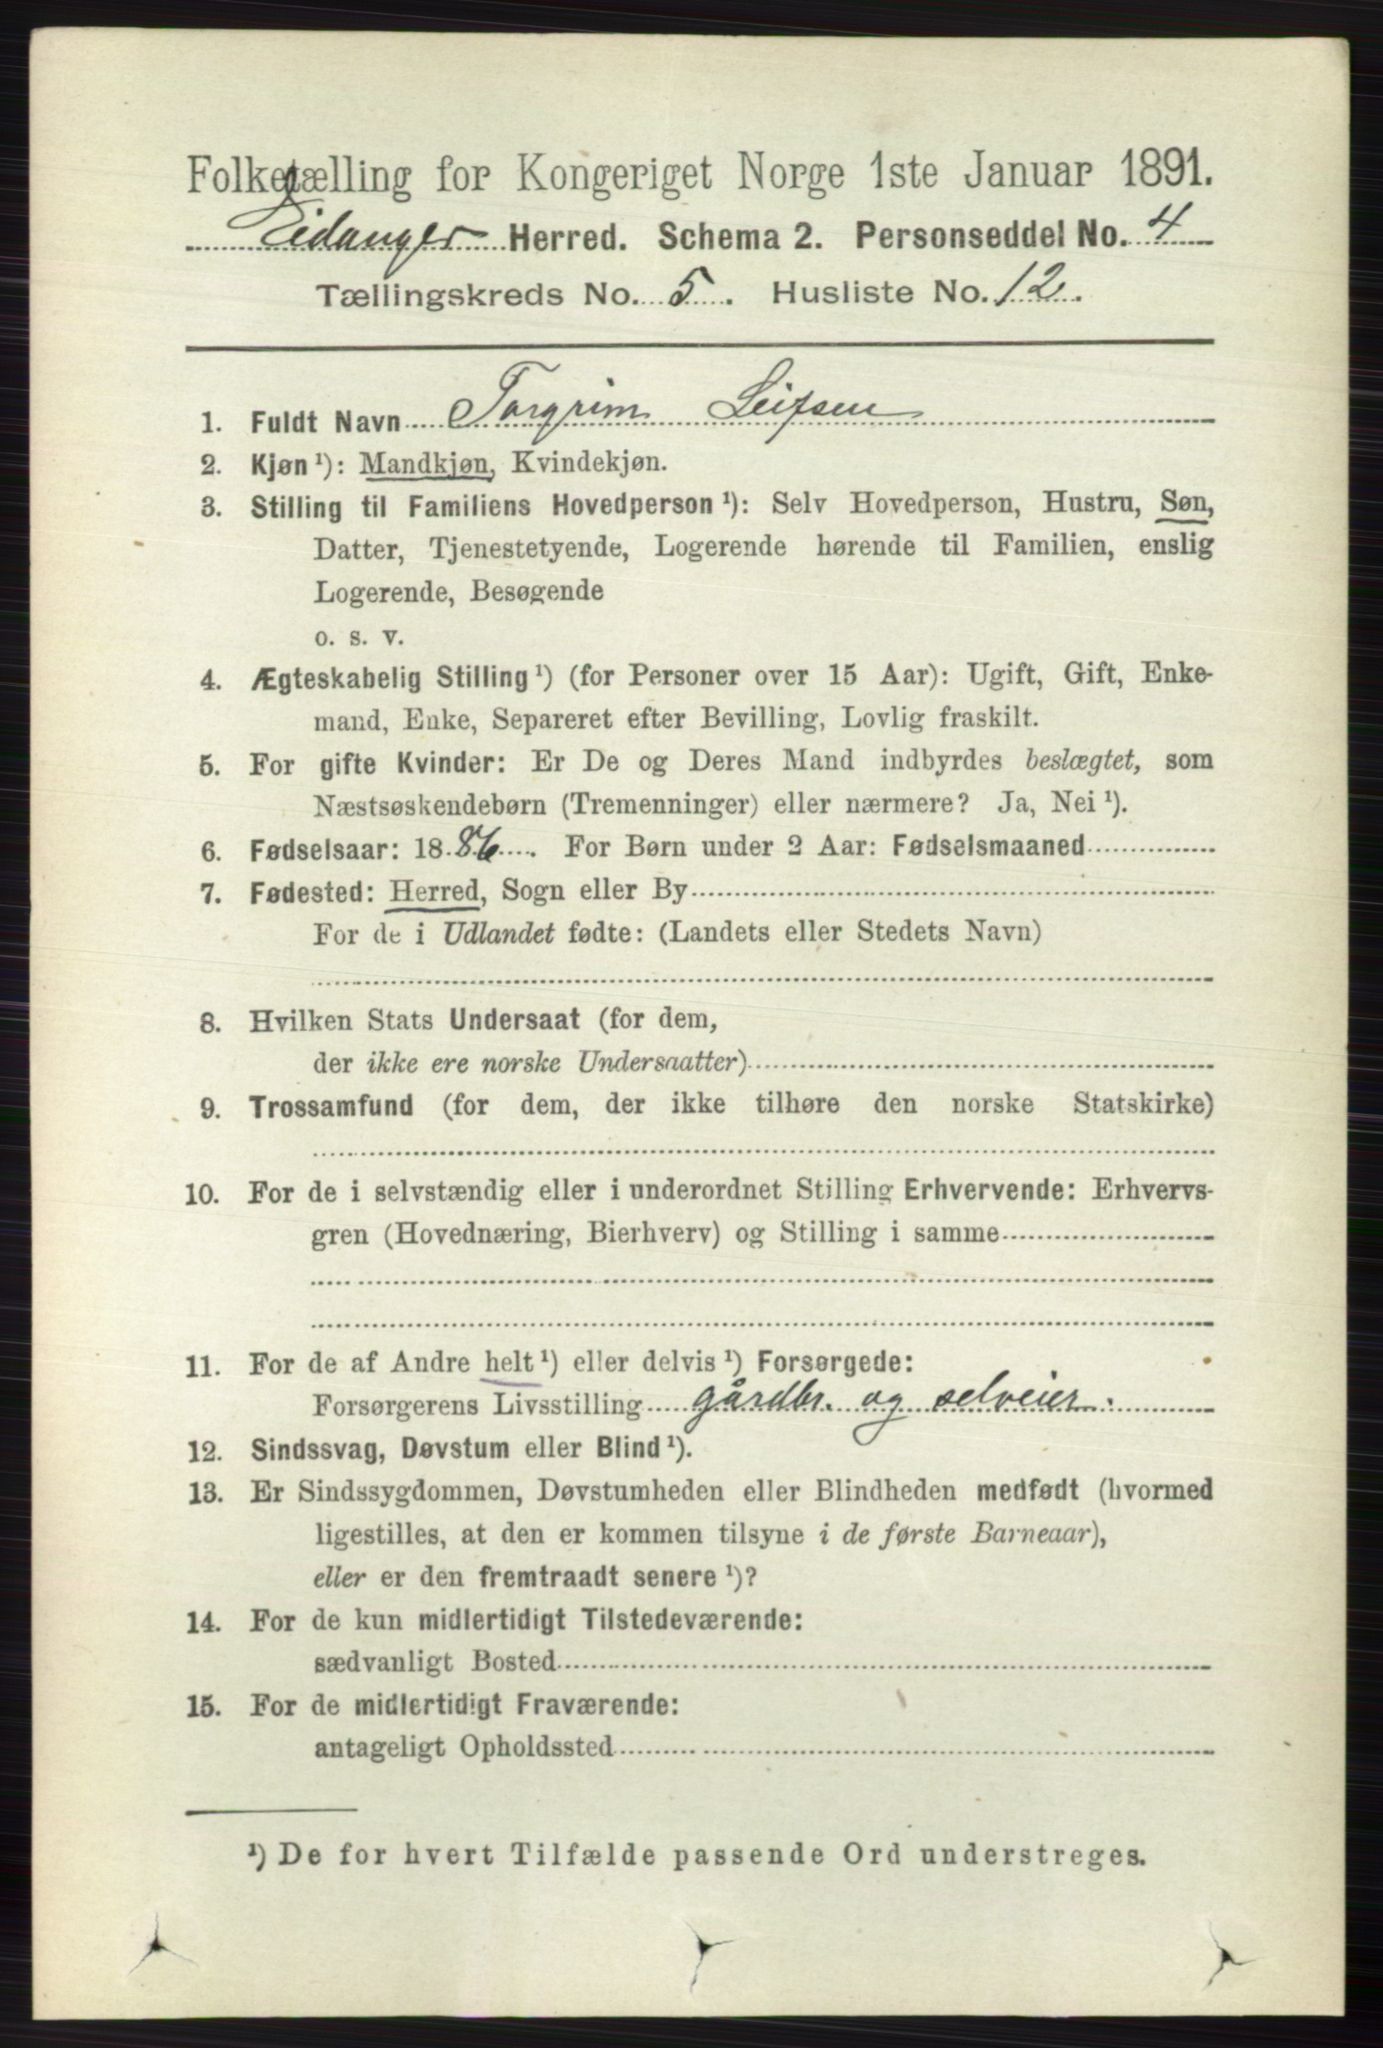 Folketælling for Kongeriget Norge 1ste Januar 1891.
Eidanger Herred. Schema 2. Personseddel No. 4
Tællingskreds No. 5. Husliste No. 12.
1. Fuldt Navn Torgrim Leifsen
2. Kjøn ¹): Mandkjøn, Kvindekjøn.
3. Stilling til Familiens Hovedperson ¹): Selv Hovedperson, Hustru, Søn,
Datter, Tjenestetyende, Logerende hørende til Familien, enslig
Logerende, Besøgende
o. s. v.
4. Ægteskabelig Stilling ¹) (for Personer over 15 Aar): Ugift, Gift, Enke-
mand, Enke, Separeret efter Bevilling, Lovlig fraskilt.
5. For gifte Kvinder: Er De og Deres Mand indbyrdes beslægtet, som
Næstsøskendebørn (Tremenninger) eller nærmere? Ja, Nei ¹).
6. Fødselsaar: 1886. For Børn under 2 Aar: Fødselsmaaned
7. Fødested: Herred, Sogn eller By
For de i Udlandet fødte: (Landets eller Stedets Navn)
8. Hvilken Stats Undersaat (for dem,
der ikke ere norske Undersaatter)
9. Trossamfund (for dem, der ikke tilhøre den norske Statskirke)
10. For de i selvstændig eller i underordnet Stilling Erhvervende: Erhvervs-
gren (Hovednæring, Bierhverv) og Stilling i samme
11. For de af Andre helt ¹) eller delvis ¹) Forsørgede:
Forsørgerens Livsstilling gårdbr. og selveier.
12. Sindssvag, Døvstum eller Blind ¹).
13. Er Sindssygdommen, Døvstumheden eller Blindheden medfødt (hvormed
ligestilles, at den er kommen tilsyne i de første Barneaar),
eller er den fremtraadt senere ¹)?
14. For de kun midlertidigt Tilstedeværende:
sædvanligt Bosted
15. For de midlertidigt Fraværende:
antageligt Opholdssted
¹) De for hvert Tilfælde passende Ord understreges.